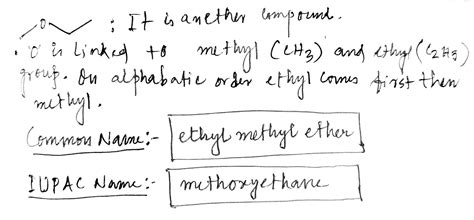 O : It is an ether compound.
• 'O' is linked to methyl (CH3) and ethyl (C2H5)
group. On alphabatic order ethyl comes first then
methyl.
Common Name:- ethyl methyl ether
IUPAC Name:- methoxyethane